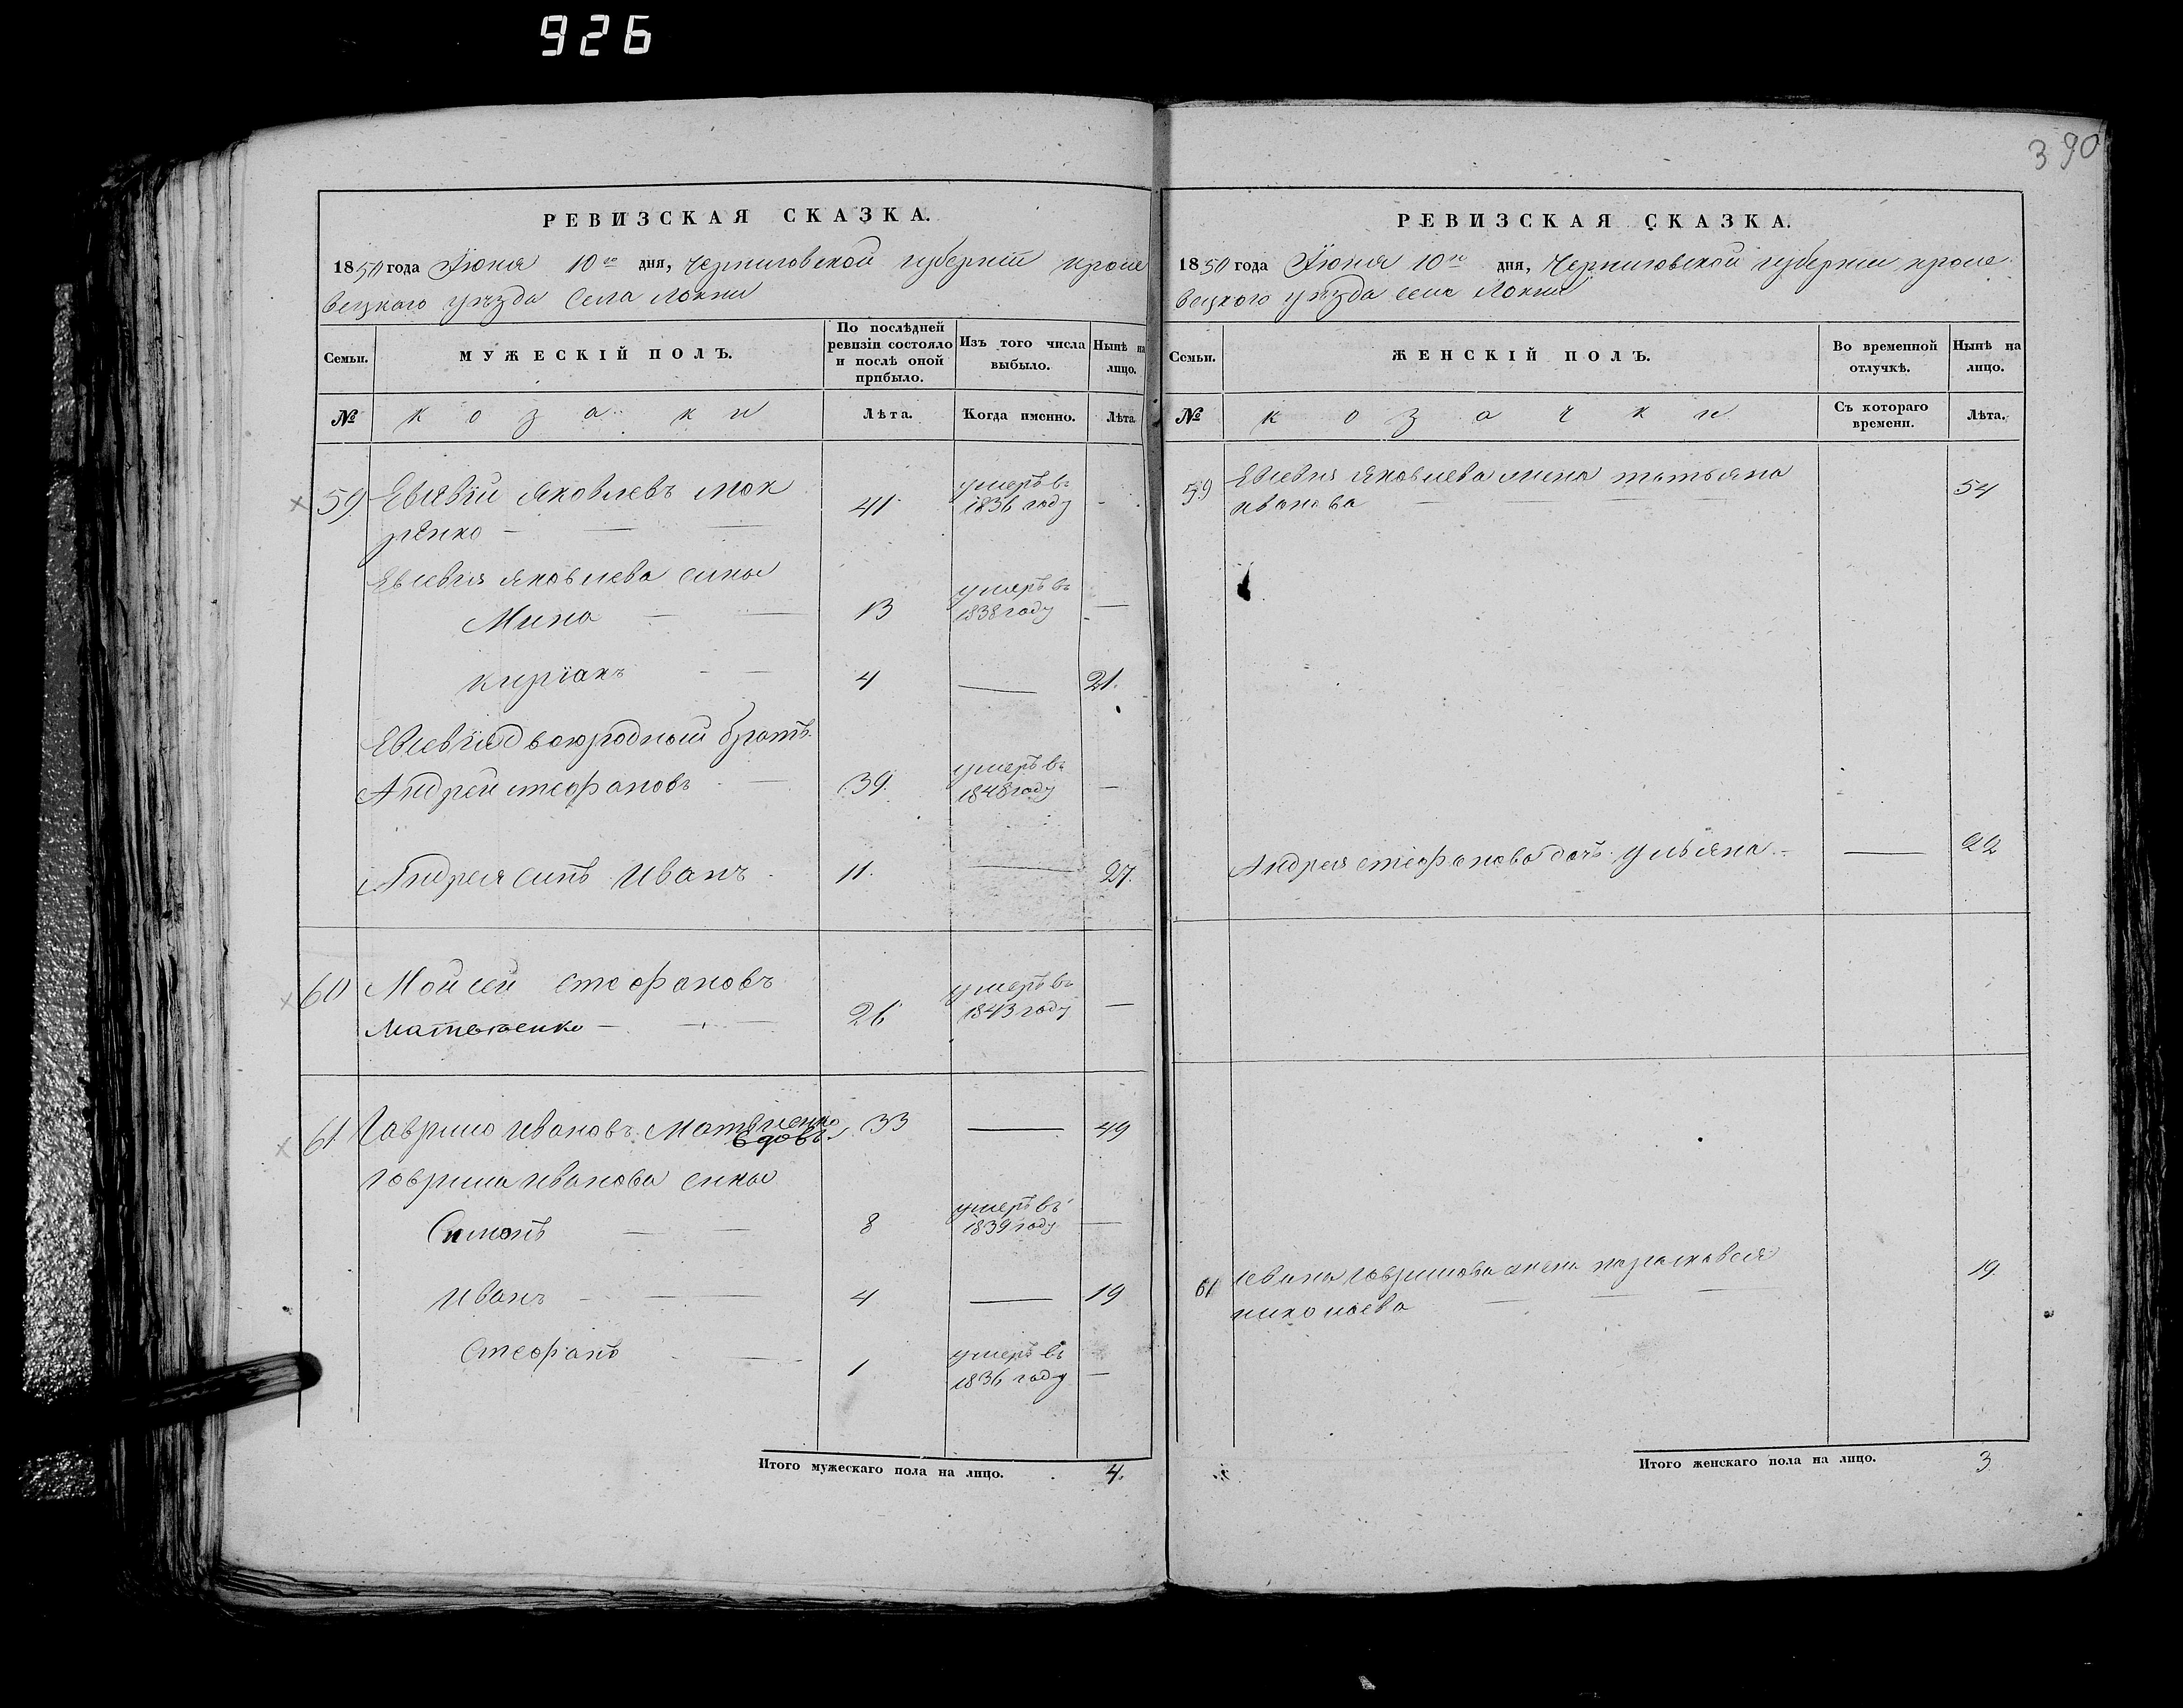 926
390
РЕВИЗСКАЯ СКАЗКА.
1850 года Июня 10го дня, Черниговской губернии кроле
вецкого уѣзда Села Локни
Семьи.
МУЖЕСКІЙ ПОЛЪ.
По послѣдней ревизіи состояло и послѣ оной прибыло.
Изъ того числа выбыло.
Нынѣ на лицо.
№
козаки
Лѣта.
Когда именно.
Лѣта.
59 Яковлевъ 41 умеръ въ 1836 году -
Яковлева сины
Мина 13 умеръ въ 1838 году -
Киріакъ 4 - 21.
двоюродный братъ
Андрей стефановъ 39 умеръ въ 1848 году -
Андрея синъ Иванъ 11. - 27.
60 Мойсей стефановъ
Матвеенко 26 умеръ въ 1843 году -
61 Гаврило Ивановъ 33 - 49
вдовъ
Гаврила Иванова сины
Симонъ 8 умеръ въ 1839 году -
Иванъ 4 - 19
Стефанъ 1 умеръ въ 1836 году -
Итого мужескаго пола на лицо. 4.
РЕВИЗСКАЯ СКАЗКА.
1850 года Июня 10го дня, Черниговской губернии кроле
вецкого уѣзда села Локни
Семьи.
ЖЕНСКІЙ ПОЛЪ.
Во временной отлучкѣ.
Нынѣ на лицо.
№
козачки
Съ котораго времени.
Лѣта.
59 Яковлева жена татьяна
иванова 54
Андрея стефанова дочь ульяна - 22
61 Ивана гаврилова жена параскевея
николаева 19.
Итого женскаго пола на лицо. 3